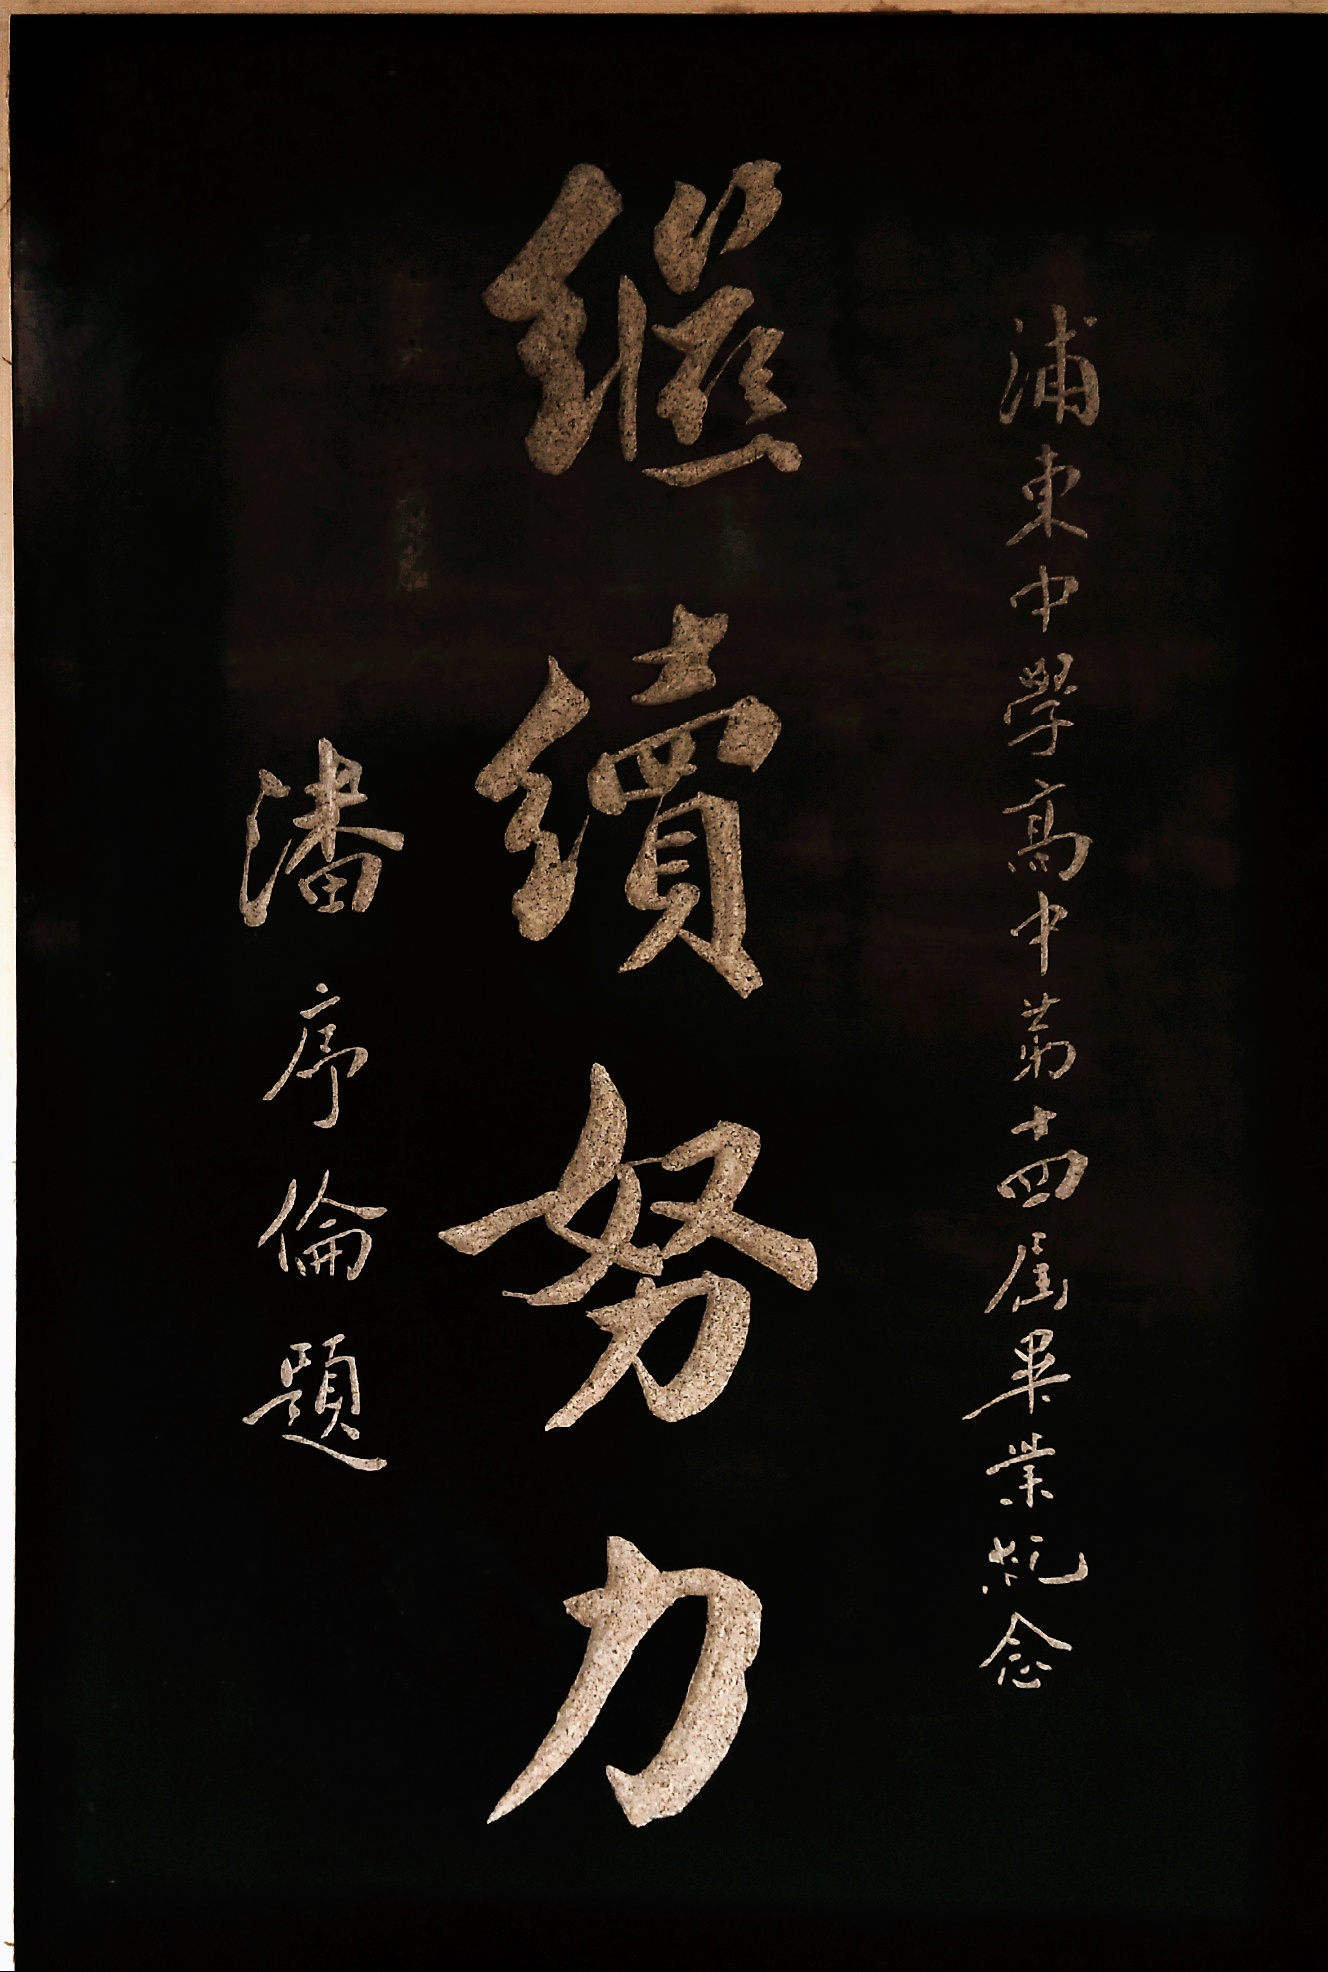 浦東中學高中第十四屆畢業紀念
繼續努力
潘序倫題